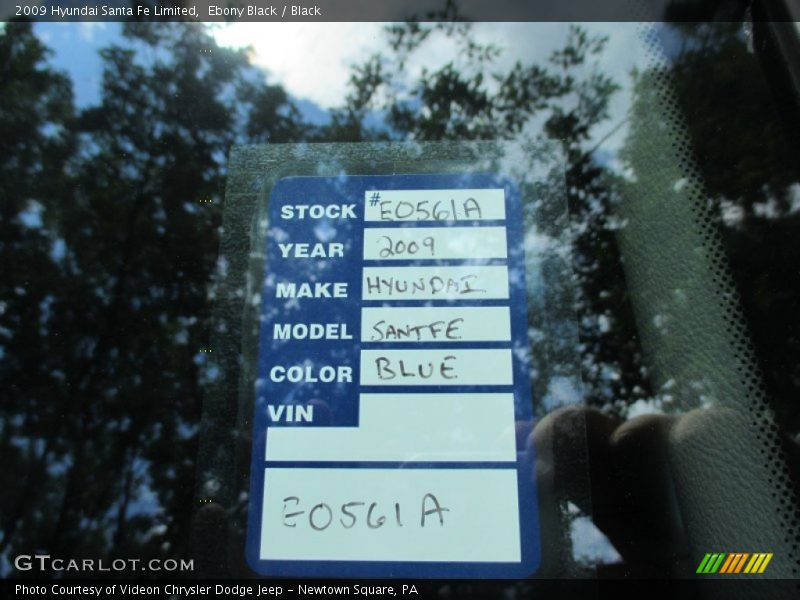 2009 Hyundai Santa Fe Limited,  Ebony Black / Black
STOCK # E0561A
YEAR 2009
MAKE HYUNDAI
MODEL SANTFE
COLOR BLUE
VIN
E0561A
GTCARLOT.COM
Photo Courtesy of Videon Chrysler Dodge Jeep - Newtown Square, PA